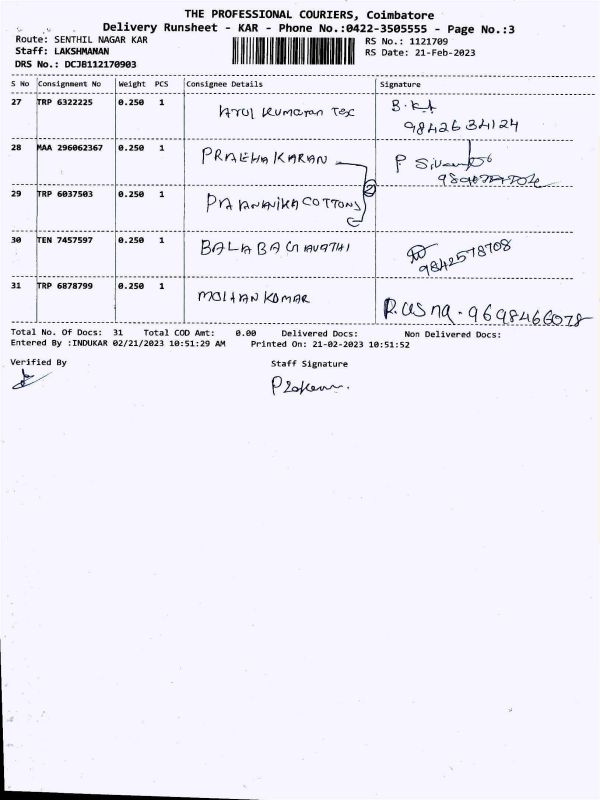 THE PROFESSIONAL COURIERS, Coimbatore
Delivery Runsheet - KAR - Phone No.:0422-3505555 - Page No.:3
Route: SENTHIL NAGAR KAR
Staff: LAKSHMANAN
DRS No.: DCJB112170903
RS No.: 1121709
RS Date: 21-Feb-2023
S No Consignment No Weight PCS Consignee Details Signature
27 TRP 6322225 0.250 1 Arul Kumaran Tex
9842634124
28 MAA 296062367 0.250 1 PRABHAKARAN P
29 TRP 6037503 0.250 1 COTTONS
30 TEN 7457597 0.250 1 BALABAGAVATHI
9842578708
31 TRP 6878799 0.250 1 MOHAN KUMAR 9698466078
Total No. Of Docs: 31 Total COD Amt: 0.00 Delivered Docs: Non Delivered Docs:
Entered By :INDUKAR 02/21/2023 10:51:29 AM Printed On: 21-02-2023 10:51:52
Verified By Staff Signature